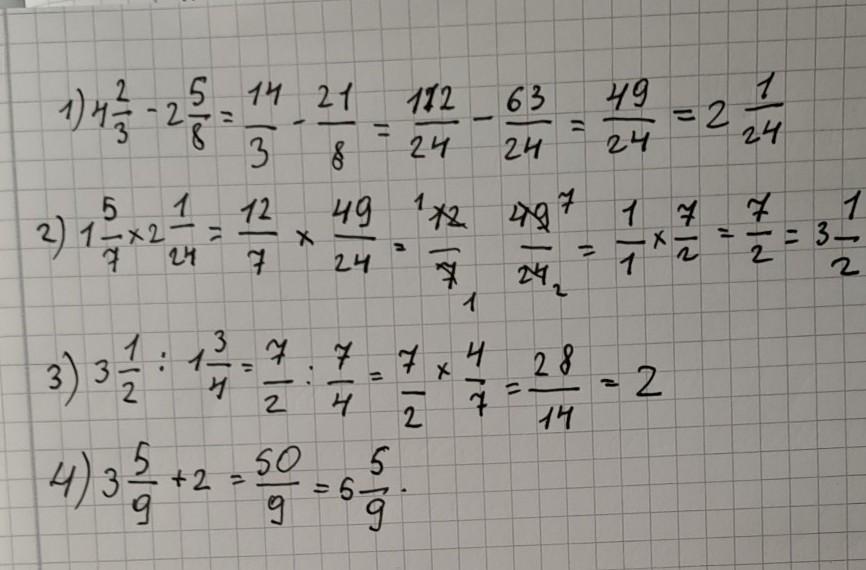 1) 4 2/3 - 2 5/8 = 14/3 - 21/8 = 112/24 - 63/24 = 49/24 = 2 1/24
2) 1 5/7 × 2 1/24 = 12/7 × 49/24 = ¹12/7₁ 49⁷/24₂ = 1/1 × 7/2 = 7/2 = 3 1/2
3) 3 1/2 : 1 3/4 = 7/2 : 7/4 = 7/2 × 4/7 = 28/14 = 2
4) 3 5/9 + 2 = 50/9 = 5 5/9.